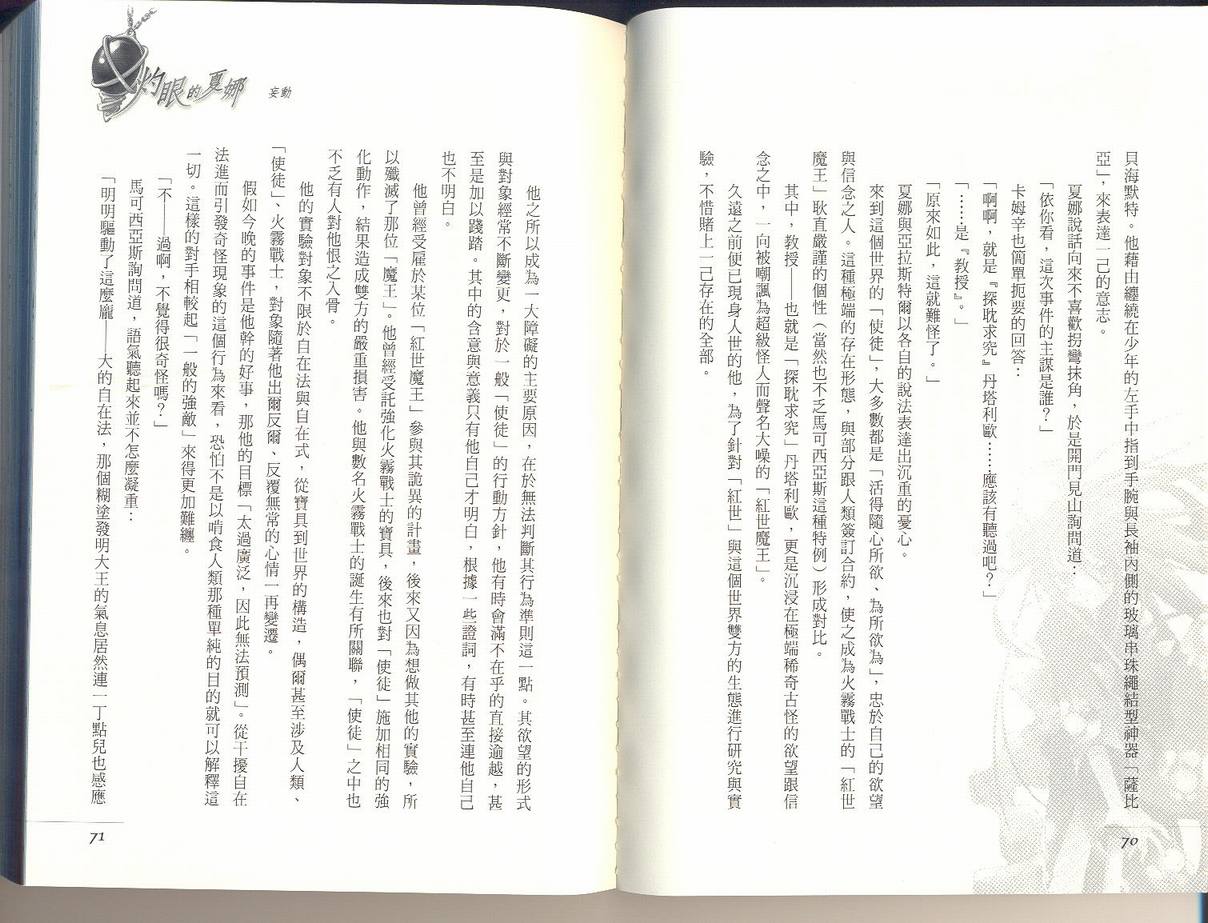 貝海默特。他藉由纏繞在少年的左手中指到手腕與長袖內側的玻璃串珠繩結型神器「薩比
亞」，來表達一己的意志。
夏娜說話向來不喜歡拐彎抹角，於是開門見山詢問道：
「依你看，這次事件的主謀是誰？」
卡姆辛也簡單扼要的回答：
「啊啊，就是『探耽求究』丹塔利歐……應該有聽過吧？」
「……是『教授』。」
「原來如此，這就難怪了。」
夏娜與亞拉斯特爾以各自的說法表達出沉重的憂心。
來到這個世界的「使徒」，大多數都是「活得隨心所欲、為所欲為」，忠於自己的欲望
與信念之人。這種極端的存在形態，與部分跟人類簽訂合約，使之成為火霧戰士的「紅世
魔王」耿直嚴謹的個性（當然也不乏馬可西亞斯這種特例）形成對比。
其中，教授——也就是「探耽求究」丹塔利歐，更是沉浸在極端稀奇古怪的欲望跟信
念之中，一向被嘲諷為超級怪人而聲名大噪的「紅世魔王」。
久遠之前便已現身人世的他，為了針對「紅世」與這個世界雙方的生態進行研究與實
驗，不惜賭上一己存在的全部。
70
灼眼的夏娜 妄動
他之所以成為一大障礙的主要原因，在於無法判斷其行為準則這一點。其欲望的形式
與對象經常不斷變更，對於一般「使徒」的行動方針，他有時會滿不在乎的直接逾越，甚
至是加以踐踏。其中的含意與意義只有他自己才明白，根據一些證詞，有時甚至連他自己
也不明白。
他曾經受雇於某位「紅世魔王」參與其詭異的計畫，後來又因為想做其他的實驗，所
以殲滅了那位「魔王」。他曾經受託強化火霧戰士的寶具，後來也對「使徒」施加相同的強
化動作，結果造成雙方的嚴重損害。他與數名火霧戰士的誕生有所關聯，「使徒」之中也
不乏有人對他恨之入骨。
他的實驗對象不限於自在法與自在式，從寶具到世界的構造，偶爾甚至涉及人類、
「使徒」、火霧戰士，對象隨著他出爾反爾、反覆無常的心情一再變遷。
假如今晚的事件是他幹的好事，那他的目標「太過廣泛，因此無法預測」。從干擾自在
法進而引發奇怪現象的這個行為來看，恐怕不是以啃食人類那種單純的目的就可以解釋這
一切。這樣的對手相較起「一般的強敵」來得更加難纏。
「不——過啊，不覺得很奇怪嗎？」
馬可西亞斯詢問道，語氣聽起來並不怎麼凝重：
「明明驅動了這麼龐——大的自在法，那個糊塗發明大王的氣息居然連一丁點兒也感應
71